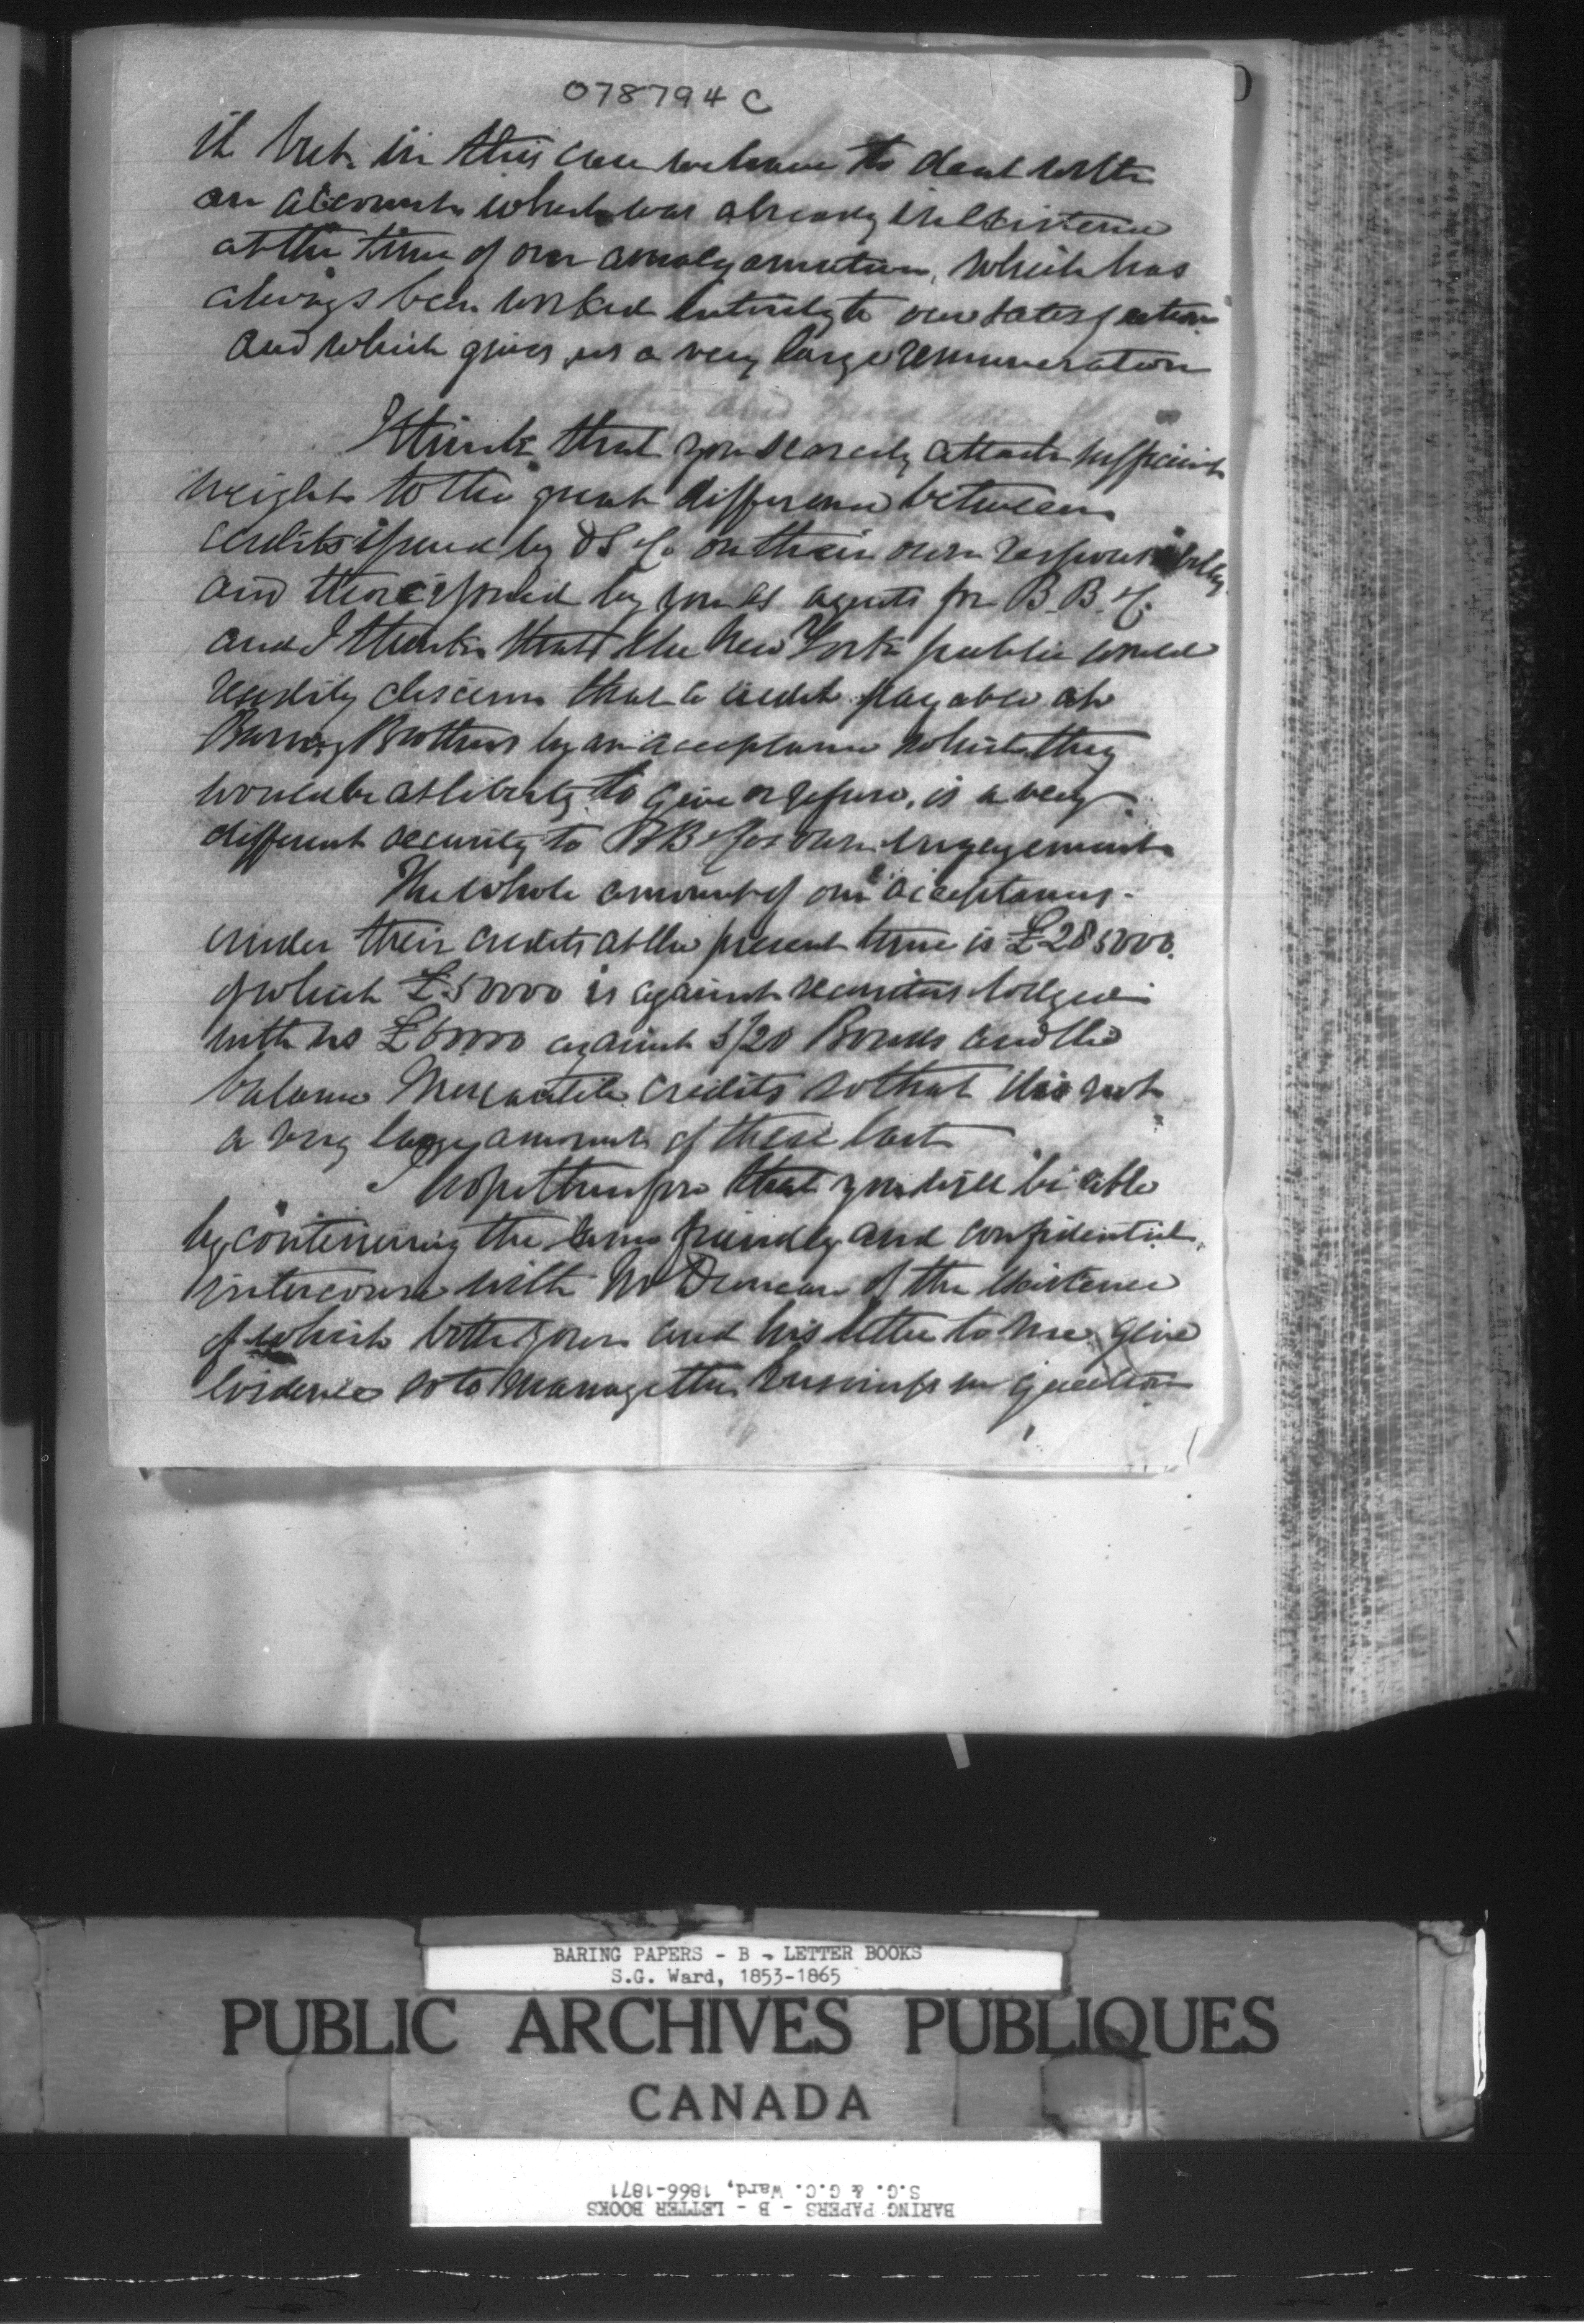 078794 C
it but in this case we have to deal with
an account which was already in existence
at the time of our amalgamation, which has
always been worked entirely to our satisfaction
and which gives us a very large remuneration
I think that you scarcely attach sufficient
weight to the great difference between
credits issued by DS & Co on their own responsibility
and those issued by you as agents for B.B. & Co.
and I think that the New York public would
readily discern that a credit payable at
Baring Brothers by an acceptance which they
would be at liberty to give or refuse, is a very
different security to BB & Cos own engagement
The whole amount of our acceptances
under their credits at the present time is £285000.
of which £50000 is against securities lodged
with us £60000 against 5/20 Bonds and the
balance Mercantile credits so that it is not
a very large amount of these last
I hope therefore that you will be able
by continuing the same friendly and confidential
intercourse with Mr Duncan of the existence
of which both yours and his letter to me give
evidence so to manage the business in question
BARING PAPERS - B - LETTER BOOKS
S.G. Ward, 1853-1865
PUBLIC ARCHIVES PUBLIQUES
CANADA
BARING PAPERS - B - LETTER BOOKS
S.G. & G.C. Ward, 1866-1871